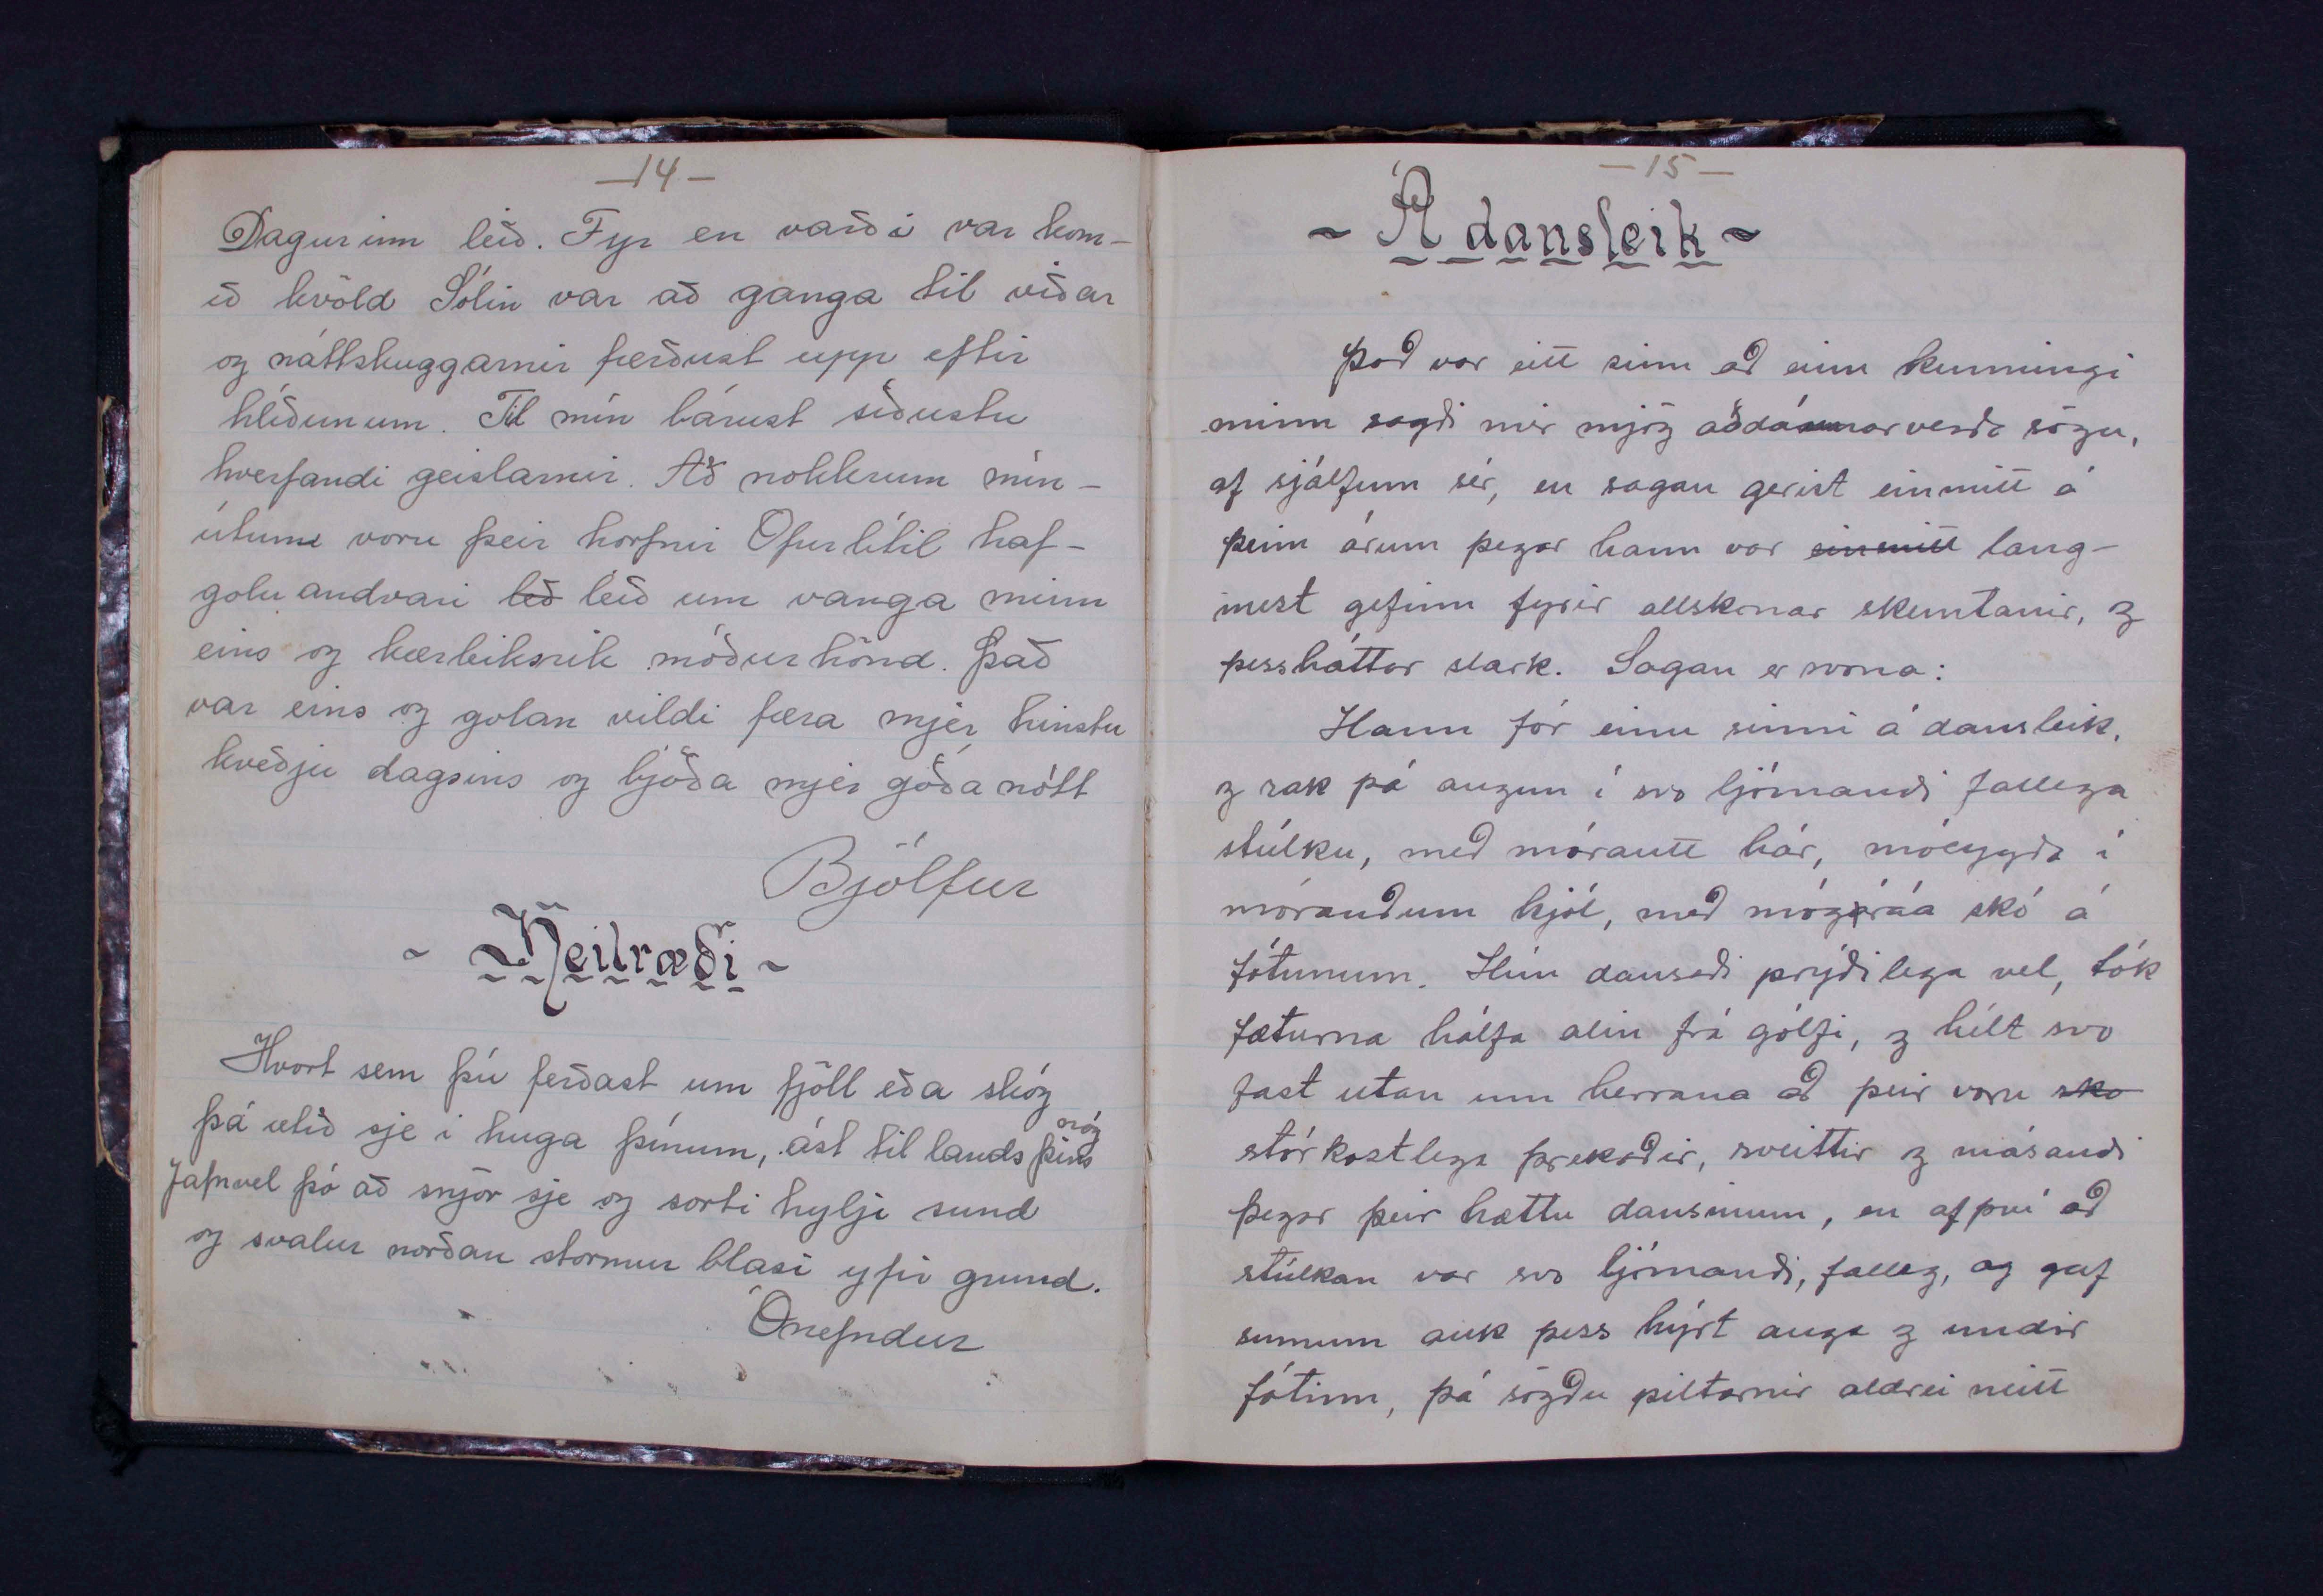 —14—
Dagurinn leið. Fyr en varði var kom-
ið kvöld Sólin var að ganga til viðar
og náttskuggarnir færðust upp eftir
hlíðunum. Til mín bárust síðustu
hverfandi geislarnir. Að nokkrum mín-
útum voru þeir horfnir Ofurlítil haf-
golu andvari leð leið um vanga minn
eins og kærleiksrík móðurhönd. Það
var eins og golan vildi færa mjer hinstu
kveðju dagsins og bjóða mjer góða nótt
Bjólfur
- Heilræði -
Hvort sem þú ferðast um fjöll eða skóg
þá ætíð sje í huga þínum, ást til lands þíns nóg
Jafnvel þó að snjór sje og sorti hylji sund
og svalur norðan stormur blasi yfir grund.
Ónefndur
—15—
~ Á dansleik ~
Það var eitt sinn að einn kunningi
minn sagði mér mjög aðdáunarverða sögu,
af sjálfum sér, en sagan gerist einmitt á
þeim árum þegar hann var einmitt lang-
mest gefinn fyrir allskonar skemtanir, og
þessháttar slark. Sagan er svona:
Hann fór einu sinni á dansleik,
og rak þá augun í svo ljómandi fallega
stúlku, með mórautt hár, móeygða í
mórauðum kjól, með mógráa skó á
fótunum. Hún dansaði prýðilega vel, tók
fæturna hálfa alin frá gólfi, og hélt svo
fast utan um herrana að þeir voru sko
stórkostlega þrekaðir, sveittir og másandi
þegar þeir hættu dansinum, en af því að
stúlkan var svo ljómandi, falleg, og gaf
sumum auk þess hýrt auga og undir
fótinn, þá sögðu piltarnir aldrei neitt